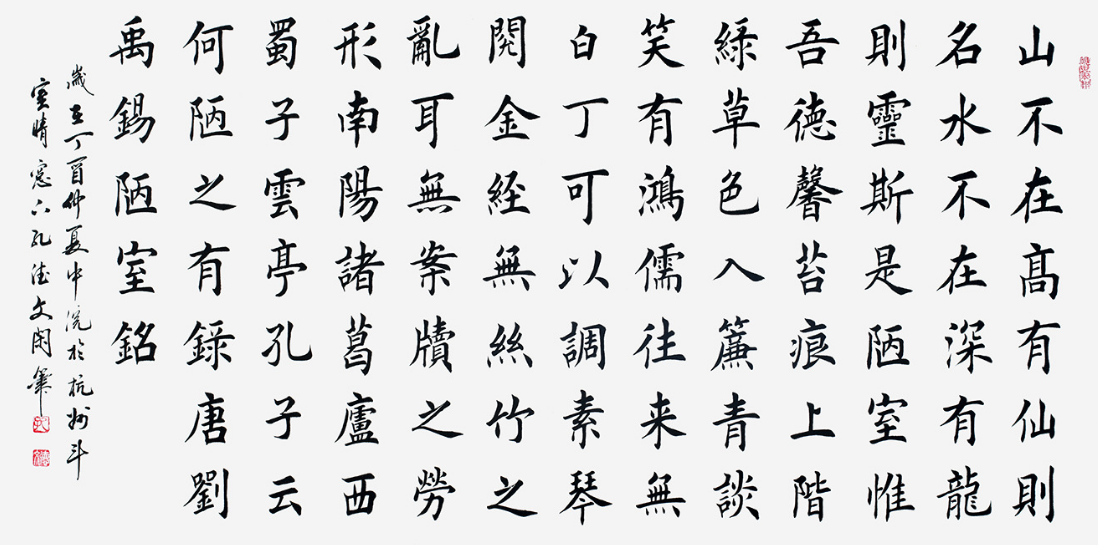 山不在髙有仙則
名水不在深有龍
則靈斯是陋室惟
吾德馨苔痕上階
緑草色入簾青談
笑有鴻儒往来無
白丁可以調素琴
閱金経無絲竹之
亂耳無案牘之勞
形南陽諸葛廬西
蜀子雲亭孔子云
何陋之有録唐劉
禹錫陋室銘
歲在丁酉仲夏中浣於杭州斗
室晴窓下孔文閑筆